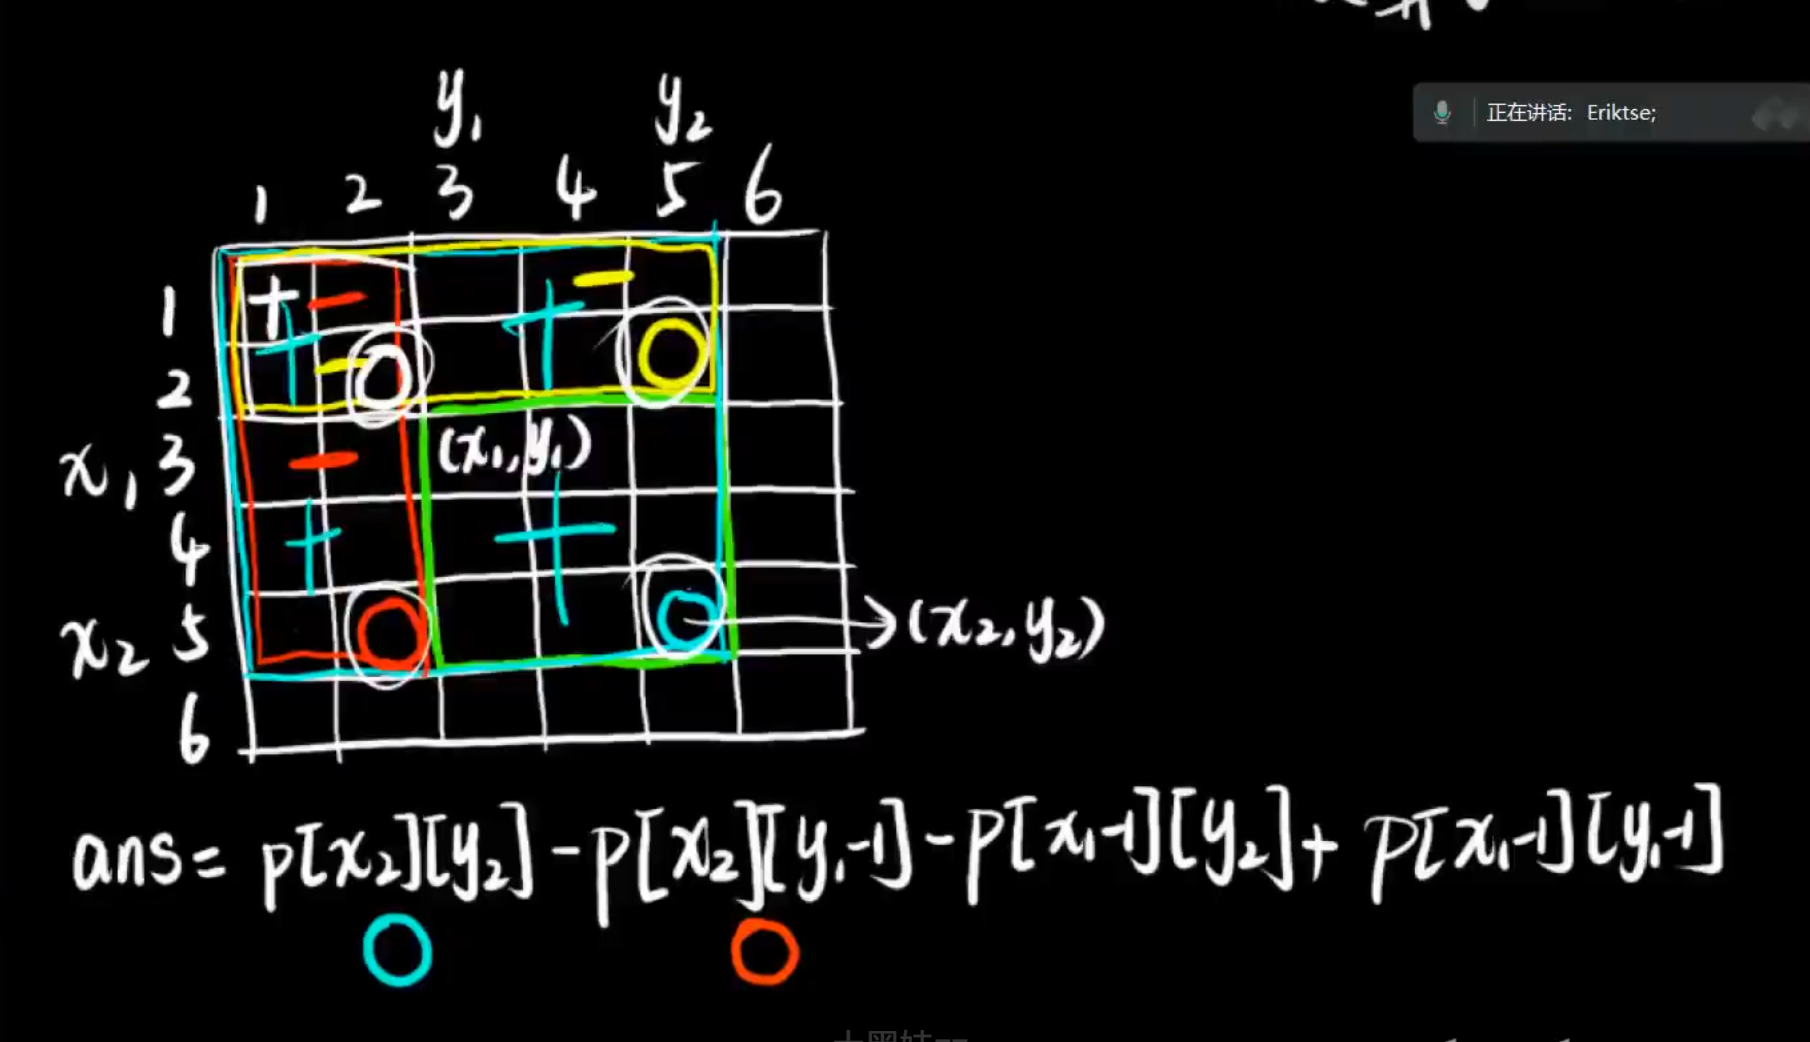 正在讲话: Eriktse;
y₁ y₂
1 2 3 4 5 6
1
2
x₁ 3 (x₁,y₁)
4
x₂ 5 (x₂,y₂)
6
ans= p[x₂][y₂]-p[x₂][y₁-1]-p[x₁-1][y₂]+p[x₁-1][y₁-1]